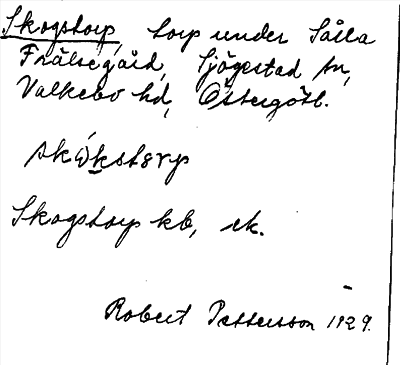 Skogstorp, torp under Sålla
Frälsegård, Sjögestad sn,
Valkebo hd, Östergötl.
Skogstorp kb, ek.
Robert Pettersson 1929.